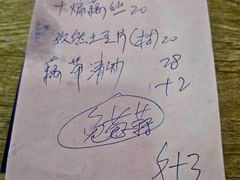 干煸藕丝 20
炊然土豆片(拈) 20
藕带清炒 28
+2
免葱蒜